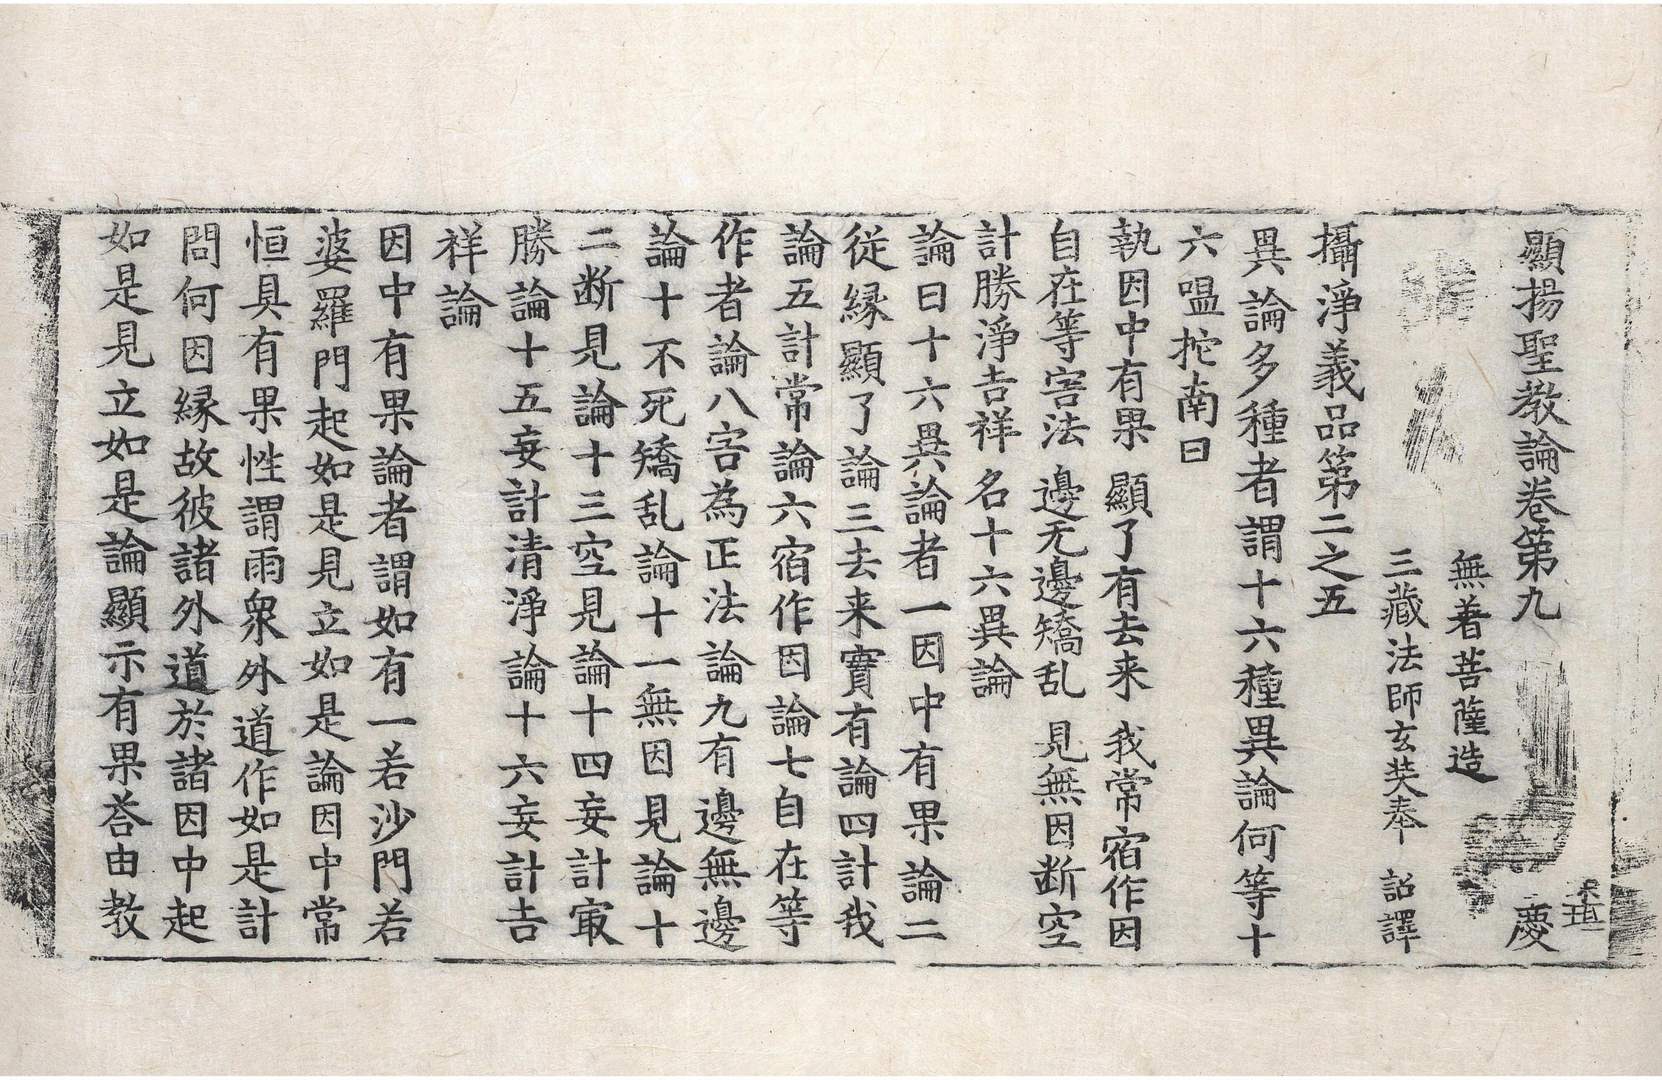 顯揚聖教論卷第九 慶
無著菩薩造
三藏法師玄奘奉 詔譯
攝淨義品第二之五
異論多種者謂十六種異論何等十
六嗢柁南曰
執因中有果 顯了有去来 我常宿作因
自在等害法 邊无邊矯乱 見無因断空
計勝淨吉祥 名十六異論
論曰十六異論者一因中有果論二
從縁顯了論三去来實有論四計我
論五計常論六宿作因論七自在等
作者論八害為正法論九有邊無邊
論十不死矯乱論十一無因見論十
二断見論十三空見論十四妄計㝡
勝論十五妄計清淨論十六妄計吉
祥論
因中有果論者謂如有一若沙門若
婆羅門起如是見立如是論因中常
恒具有果性謂雨衆外道作如是計
問何因縁故彼諸外道於諸因中起
如是見立如是論顯示有果荅由教